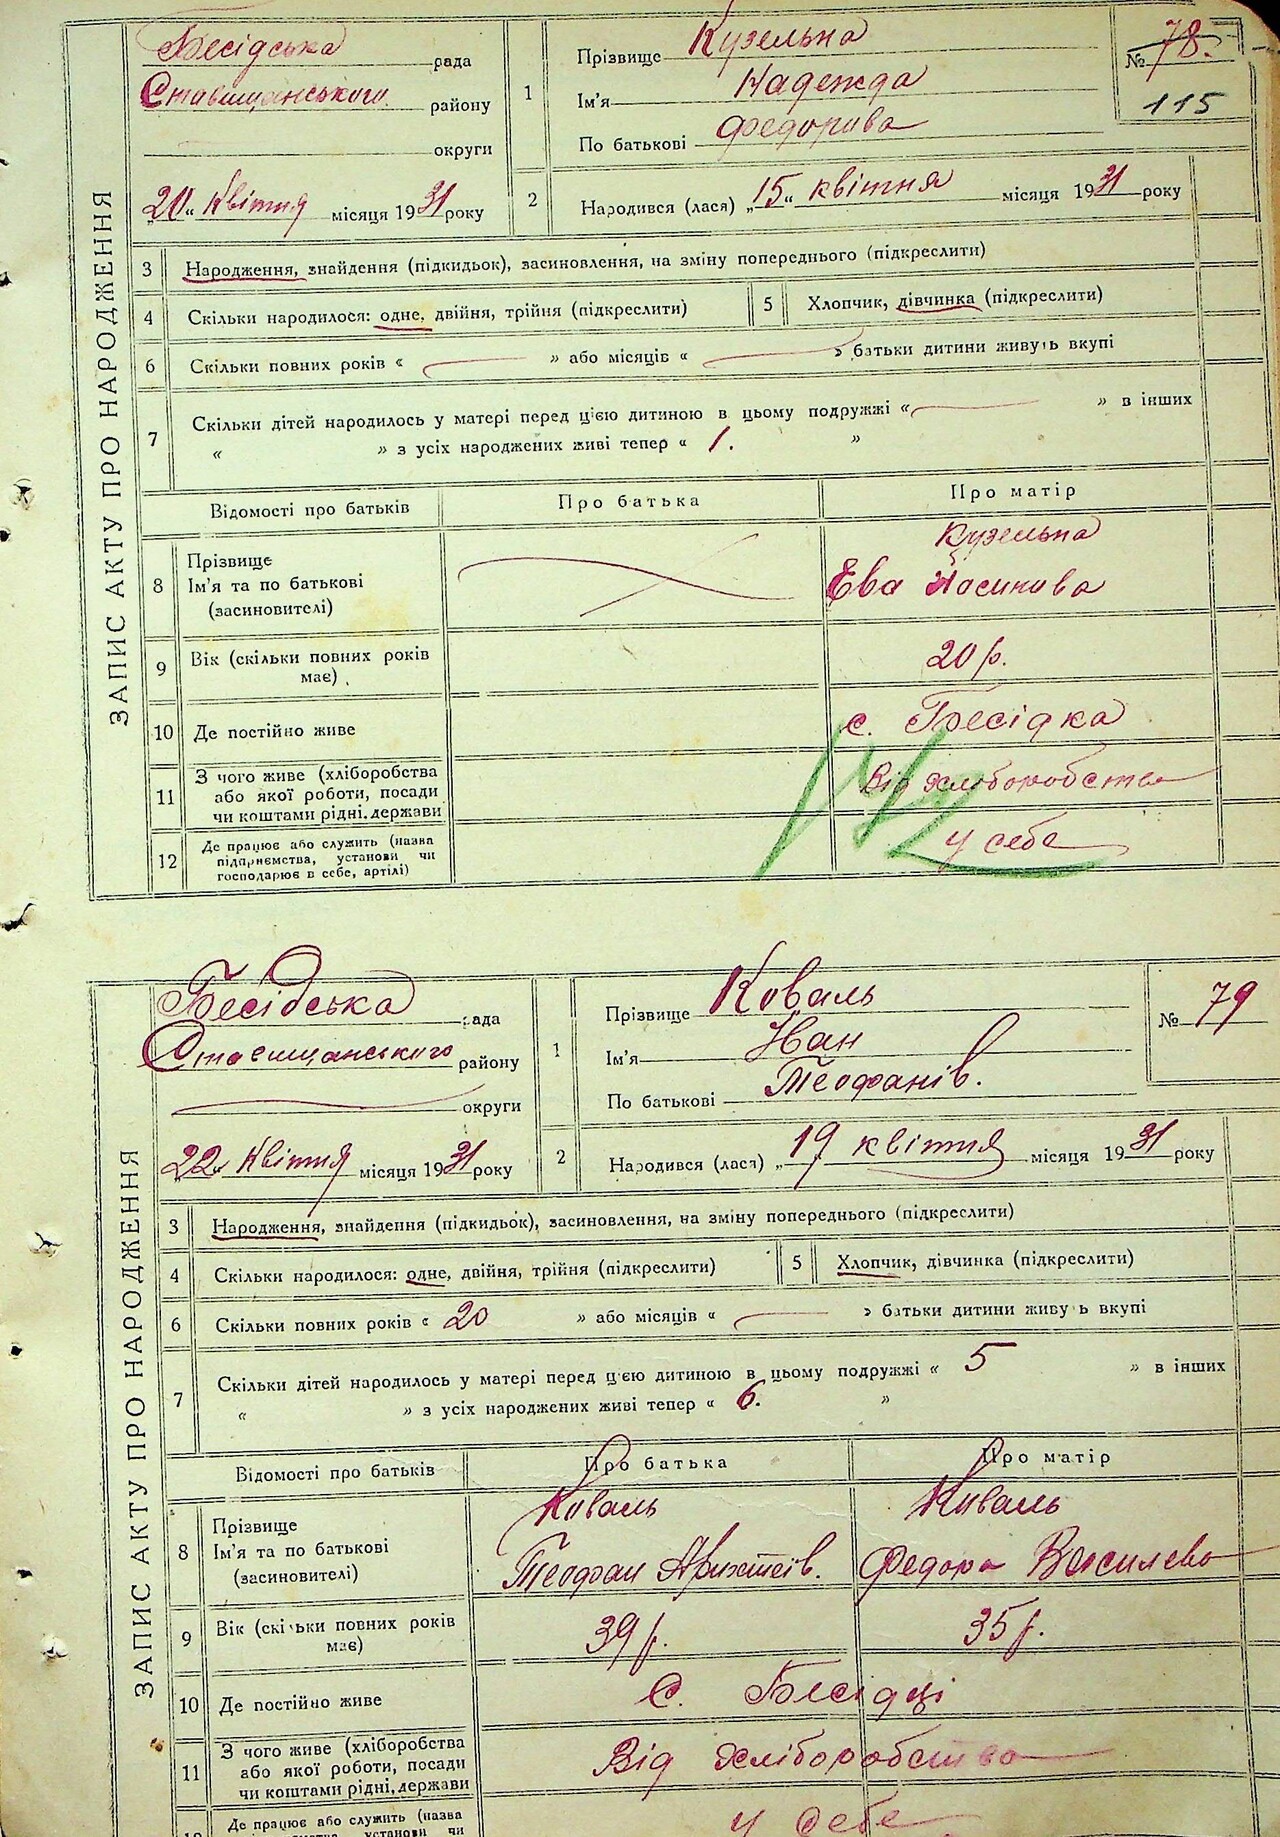 ЗАПИС АКТУ ПРО НАРОДЖЕННЯ
Бесідська рада
Ставищанського району
округи
„20“ Квітня місяця 1931 року
1 Прізвище Кузельна
Ім'я Надежда
По батькові Федорова
№ 78.
115
2 Народився (лася) „15“ квітня місяця 1931 року
3 Народження, знайдення (підкидьок), засиновлення, на зміну попереднього (підкреслити)
4 Скільки народилося: одне, двійня, трійня (підкреслити) 5 Хлопчик, дівчинка (підкреслити)
6 Скільки повних років « » або місяців « » батьки дитини живуть вкупі
7 Скільки дітей народилось у матері перед цією дитиною в цьому подружжі « » в інших
« » з усіх народжених живі тепер « 1. »
Відомості про батьків Про батька Про матір
8 Прізвище Кузельна
Ім'я та по батькові Ева
(засиновителі)
9 Вік (скільки повних років має) 20 р.
10 Де постійно живе с. Бесідка
11 З чого живе (хліборобства
або якої роботи, посади
чи коштами рідні, держави Від хліборобства
12 Де працює або служить (назва
підприємства, установи чи
господарює в себе, артілі) у себе
ЗАПИС АКТУ ПРО НАРОДЖЕННЯ
Бесідська рада
Ставищанського району
округи
22 Квітня місяця 1931 року
1 Прізвище Коваль
Ім'я Иван
По батькові Теофанів.
№ 79
2 Народився (лася) „19“ квітня місяця 1931 року
3 Народження, знайдення (підкидьок), засиновлення, на зміну попереднього (підкреслити)
4 Скільки народилося: одне, двійня, трійня (підкреслити) 5 Хлопчик, дівчинка (підкреслити)
6 Скільки повних років « 20 » або місяців « » батьки дитини живуь вкупі
7 Скільки дітей народилось у матері перед цією дитиною в цьому подружжі « 5 » в інших
« » з усіх народжених живі тепер « 6. »
Відомості про батьків Про батька Про матір
8 Прізвище Коваль Коваль
Ім'я та по батькові Теофан Федора Василева
(засиновителі)
9 Вік (скільки повних років має) 39 р. 35 р.
10 Де постійно живе С. Бесідці
11 З чого живе (хліборобства
або якої роботи, посади
чи коштами рідні, держави Від хліборобства
Де працює або служить (назва
установи чи у себе